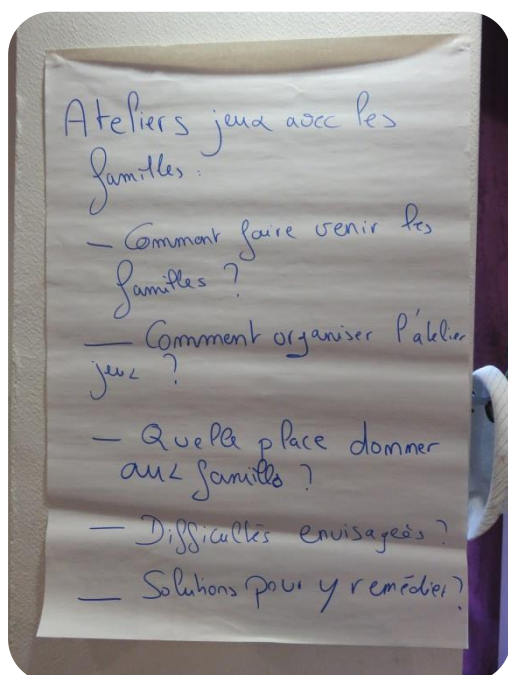 Ateliers jeux avec les
familles :
— Comment faire venir les
familles ?
— Comment organiser l'atelier
jeux ?
— Quelle place donner
aux familles ?
— Difficultés envisagées ?
— Solutions pour y remédier ?